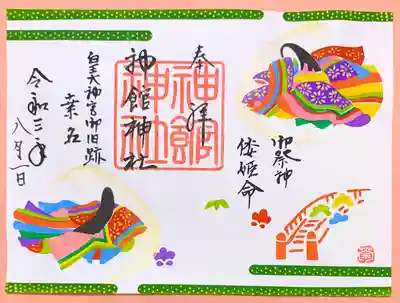 御祭神
倭姫命
奉拝
神館神社
神館神社
皇大神宮御旧跡
桑名
令和三年
八月一日